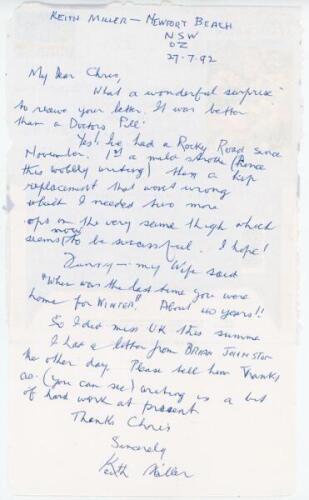 KEITH MILLER - NEWPORT BEACH
NSW
OZ
27.7.92
My Dear Chris,
What a wonderful surprise
to receive your letter. It was better
than a Doctors Pill.
Yes! I've had a Rocky Road since
November. 1st a mild stroke (hence
this wobbly writing) then a hip
replacement that went wrong
which I needed two more
ops on the very same thigh which
seems now to be successful. I hope!
Funny - my Wife said
"When was the last time you were
home for WINTER". About 40 years!!
So I did miss UK this summer
I had a letter from BRIAN JOHNSTON
the other day. Please tell him Thanks
as (you can see) writing is a bit
of hard work at present.
Thanks Chris
Sincerely
Keith Miller